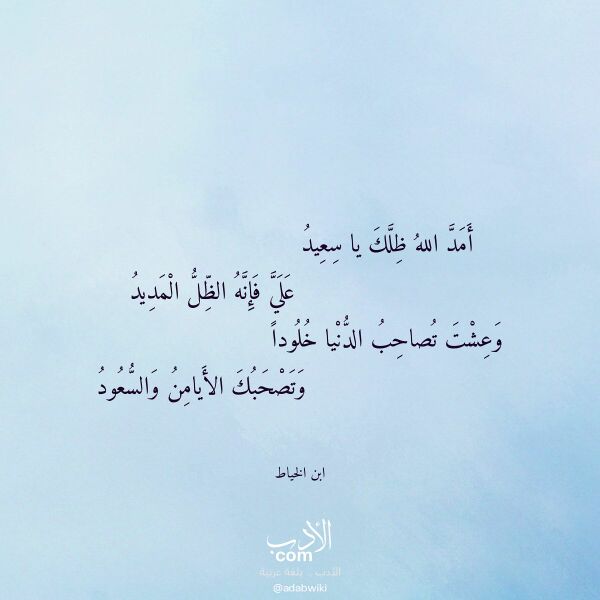 أَمَدَّ اللهُ ظِلَّكَ يا سِعِيدُ
عَلَيَّ فَإِنَّهُ الظِّلُّ الْمَدِيدُ
وَعِشْتَ تُصاحِبُ الدُّنْيا خُلُوداً
وَتَصْحَبُكَ الأَيامِنُ وَالسُّعُودُ
ابن الخياط
الأدب
com
الأدب .. بلغة عربية
@adabwiki